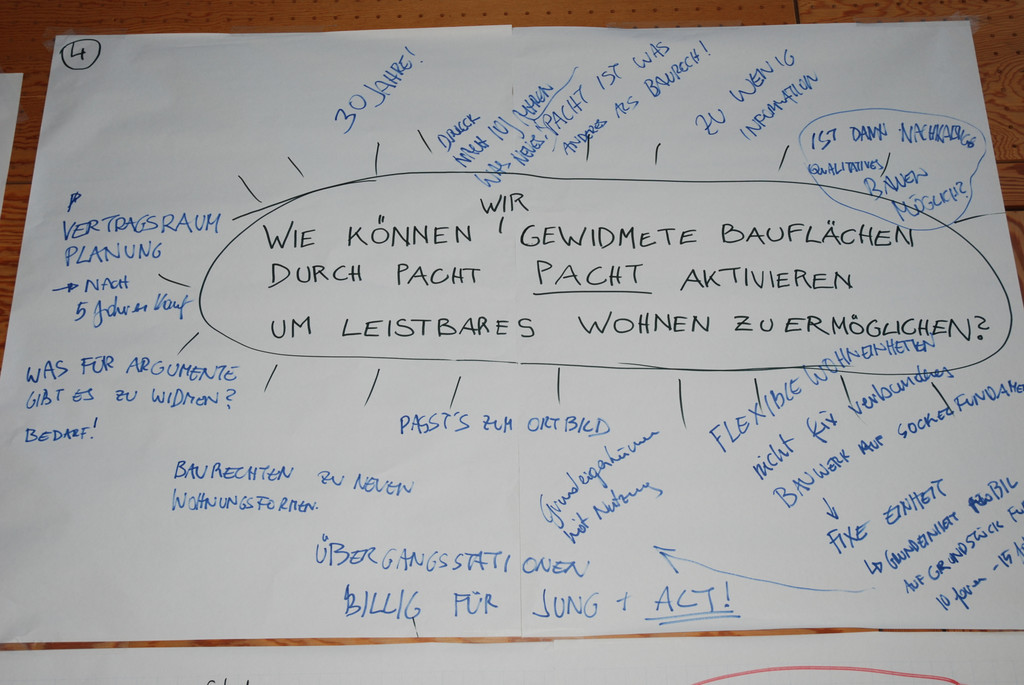 4
30 JAHRE!
DRUCK
NACH 101 JAHREN
WAS NEUES
PACHT IST WAS
ANDERES ALS BAURECH!
ZU WENIG
INFORMATION
IST DANN
QUALITATIVES
BAUEN
MÖGLICH?
VERTRAGSRAUM
PLANUNG
→ NACH
5 Jahren Kauf
WIR
WIE KÖNNEN GEWIDMETE BAUFLÄCHEN
DURCH PACHT PACHT AKTIVIEREN
UM LEISTBARES WOHNEN ZU ERMÖGLICHEN?
WAS FÜR ARGUMENTE
GIBT ES ZU WIDMEN?
BEDARF!
PASST'S ZUM ORTBILD
BAURECHTEN ZU NEUEN
WOHNUNGSFORMEN.
ÜBERGANGSSTATIONEN
BILLIG FÜR JUNG + ALT!
Grundeigentümer
mit Nutzung
FLEXIBLE WOHNEINHEITEN
nicht fix verbundenes
BAUWERK AUF SOCKELFUNDAME
↓
FIXE EINHEIT
↳ GRUNDEINHEIT MOBIL
AUF GRUNDSTÜCK FÜ
10 Jahren - 15